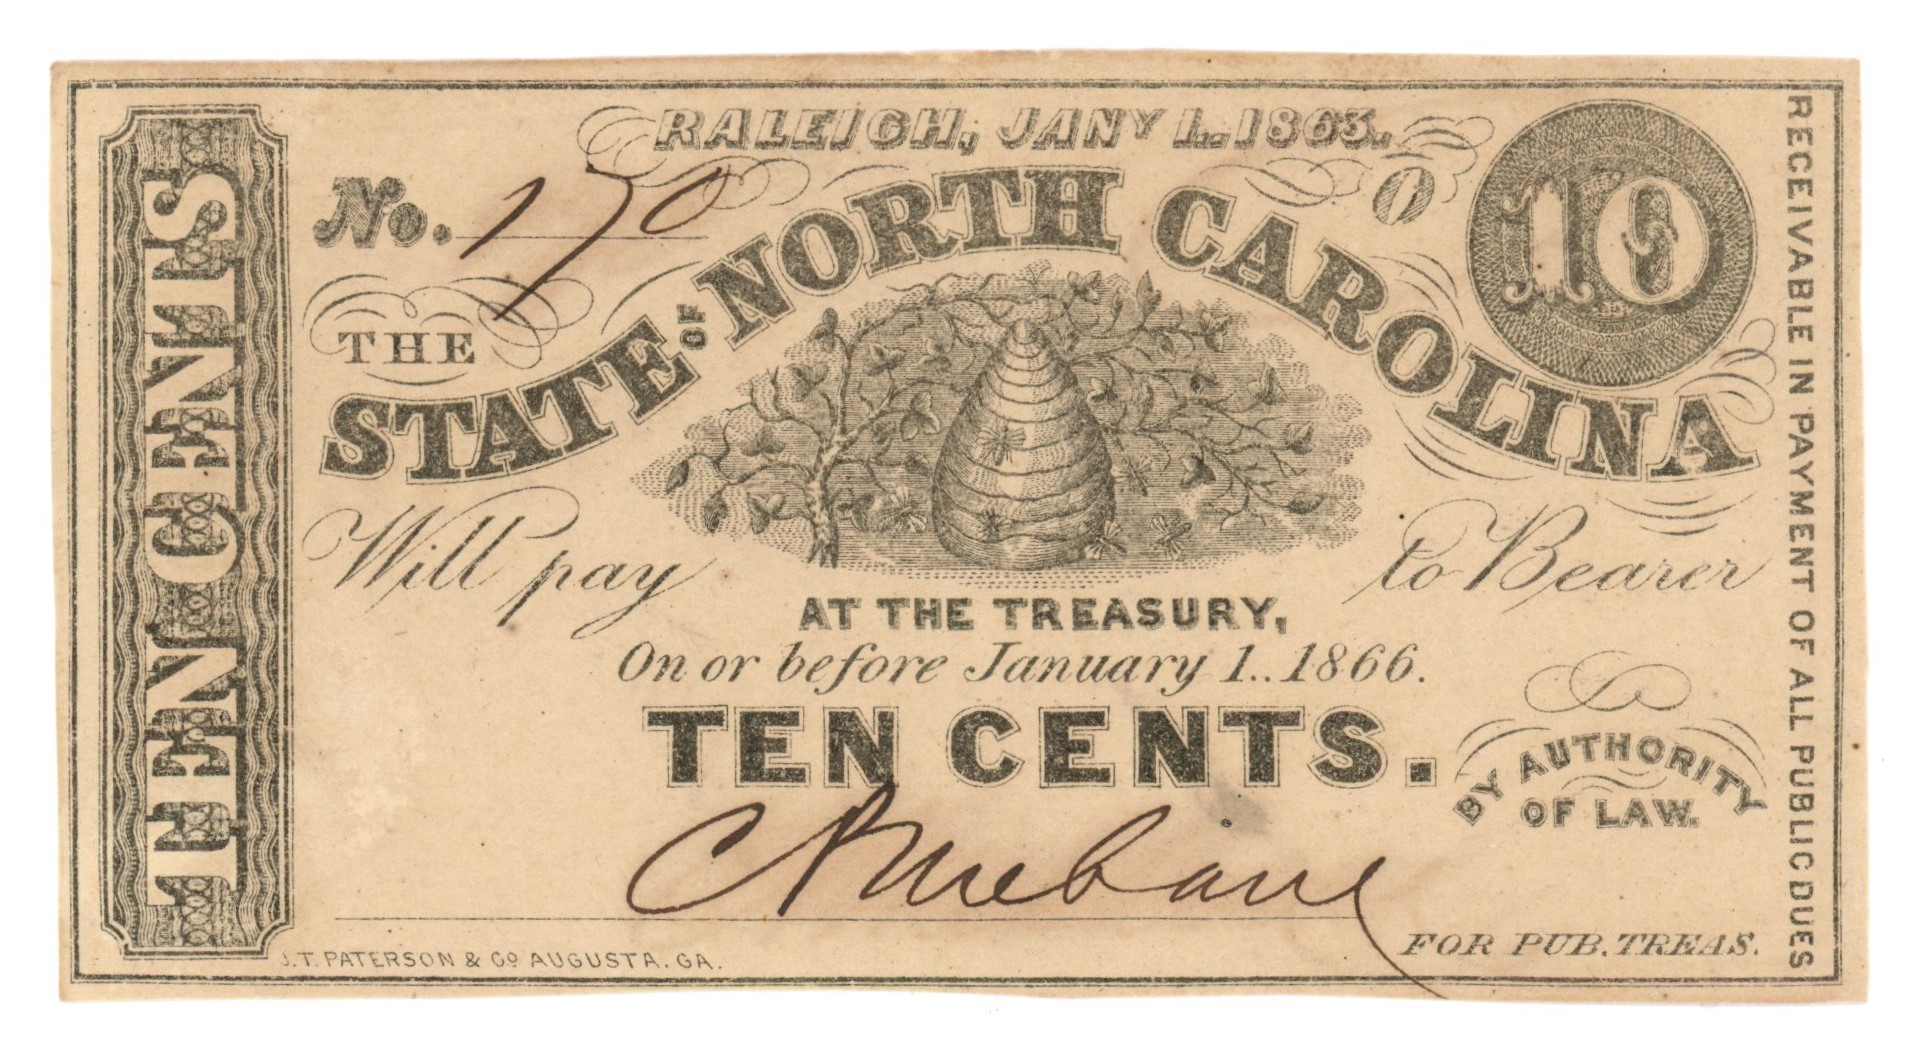 RALEIGH, JANY 1..1863.
No. 170
O
10
THE
STATE OF NORTH CAROLINA
Will pay to Bearer
AT THE TREASURY,
On or before January 1..1866.
TEN CENTS.
BY AUTHORITY
OF LAW.
C Mebane
FOR PUB. TREAS.
J.T. PATERSON & CO AUGUSTA. GA.
TEN CENTS
RECEIVABLE IN PAYMENT OF ALL PUBLIC DUES